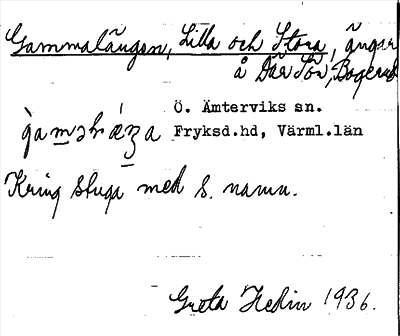 Gammalängen, Lilla och Stora, ängar
å Där Sör,
Ö. Ämterviks sn.
Fryksd.hd, Värml.län
Kring stuga med s. namn.
Greta Hedin 1936.